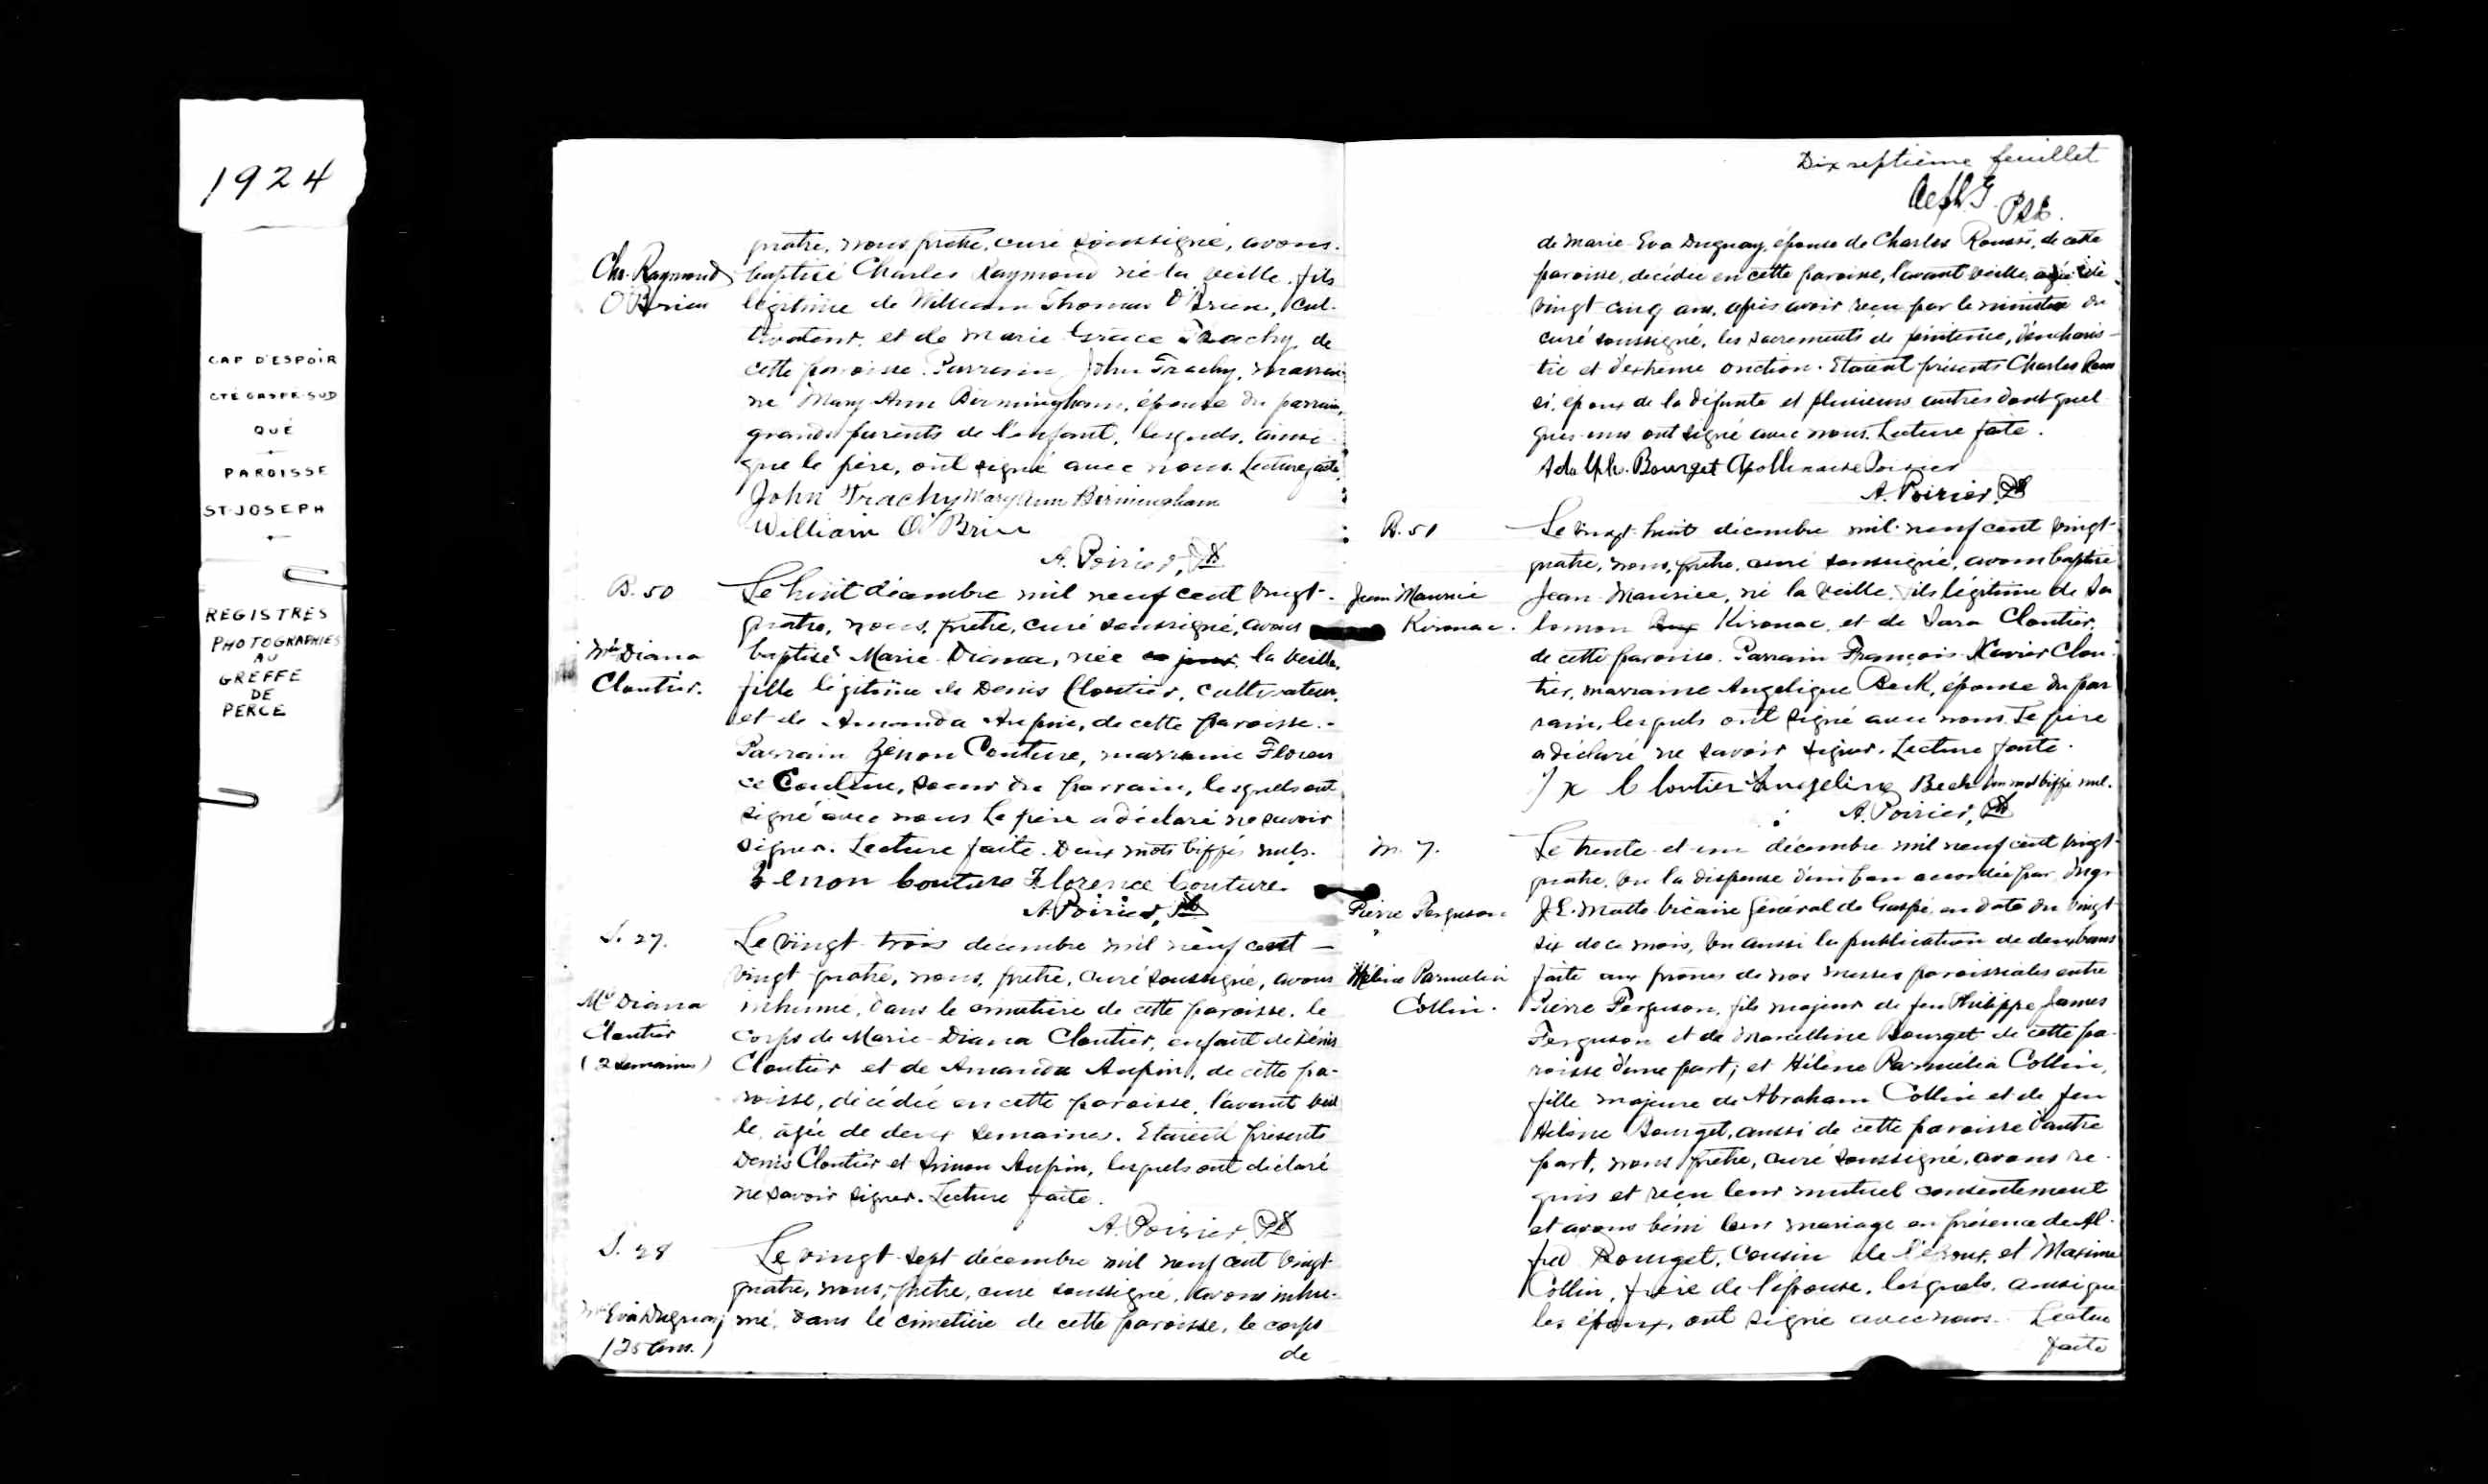 1924
CAP D'ESPOIR
CTÉ GASPE-SUD
QUÉ
PAROISSE
ST-JOSEPH
REGISTRES
PHOTOGRAPHIES
AU
GREFFE
DE
PERCE
Ch. Raymond
O'Brien
quatre, nous, prêtre, curé soussigné, avons
baptisé Charles Raymond né la veille, fils
légitime de William Thomas O'Brien, cul-
tivateur, et de Marie Grace Trachy, de
cette paroisse. Parrain, John Trachy, marrai-
ne Mary Ann Birmingham, épouse du parrain,
grands parents de l'enfant, lesquels, ainsi
que le père, ont signé avec nous. Lecture faite.
John Trachy Mary Ann Birmingham
William O'Brien
A. Poirier, Ptr
B. 50
Mie Diana
Cloutier.
Le huit décembre mil neuf cent vingt-
quatre, nous, prêtre, curé soussigné, avons
baptisé Marie Diana, née ce jour la veille,
fille légitime de Denis Cloutier, cultivateur,
et de Amanda Aupin, de cette paroisse.-
Parrain Zénon Couture, marraine Floren
ce Couture, soeur du parrain, lesquels ont
signé avec nous Le père a déclaré ne savoir
signer. Lecture faite. Deux mots biffés nuls.
Zenon Couture Florence Couture
A. Poirier, Ptr
S. 27.
Mie Diana
Cloutier
(2 semaines)
Le vingt-trois décembre mil neuf cent-
vingt quatre, nous, prêtre, curé soussigné, avons
inhumé, dans le cimetière de cette paroisse, le
corps de Marie-Diana Cloutier, enfant de Denis
Cloutier et de Amanda Aupin, de cette pa-
roisse, décédée en cette paroisse, l'avant veil
le, âgée de deux semaines. Etaient présents
Denis Cloutier et Simon Aupin, lesquels ont déclaré
ne savoir signer. Lecture faite.
A. Poirier, Ptr
S. 28
Mie Eva Duguay
(25 ans.)
Le vingt-sept décembre mil neuf cent vingt
quatre, nous, prêtre, curé soussigné, avons inhu-
mé, dans le cimetière de cette paroisse, le corps
de
Dix septième feuillet
de Marie-Eva Duguay, épouse de Charles Roussi, de cette
paroisse, décédée en cette paroisse, l'avant veille, âgée de
vingt cinq ans, après avoir reçu par le ministère du
curé soussigné, les sacrements de pénitence, d'eucharis-
tie et d'extrême onction. Etaient présents Charles Rous
si, époux de la défunte et plusieurs autres dont quel
ques-uns ont signé avec nous. Lecture faite.
Adolph. Bourget Apollinaire Poirier
A. Poirier, Ptr
B. 51
Jean Maurice
Kironac.
Le vingt-huit décembre mil neuf cent vingt-
quatre, nous, prêtre, curé soussigné, avons baptisé
Jean-Maurice, né la veille, fils légitime de Sa
lomon Kironac, et de Sara Cloutier,
de cette paroisse. Parrain François-Xavier Clou-
tier, marraine Angelique Beck, épouse du par
rain, lesquels ont signé avec nous. Le père
a déclaré ne savoir signer. Lecture faite.
F x Cloutier Angeline Beck Un mot biffé nul.
A. Poirier, Ptr
M. 7.
Pierre Ferguson
Hélène Parmélia
Collin.
Le trente-et-un décembre mil neuf cent vingt-
quatre, vu la dispense d'un ban accordée par Mgr
J. E. Matte Vicaire Général de Gaspé, en date du vingt
six de ce mois, vu aussi la publication de deux bans
faite aux prônes de nos messes paroissiales entre
Pierre Ferguson, fils majeur de feu Philippe James
Ferguson et de Marcelline Bourget de cette pa-
roisse d'une part; et Hélène Parmélia Collin,
fille majeure de Abraham Collin et de feu
Hélène Bourget, aussi de cette paroisse d'autre
part, nous, prêtre, curé soussigné, avons re-
quis et reçu leur mutuel consentement
et avons béni leur mariage en présence de Al-
fred Bourget, cousin de l'époux, et Maxime
Collin, frère de l'épouse, lesquels, ainsi que
les époux, ont signé avec nous. Lecture
faite